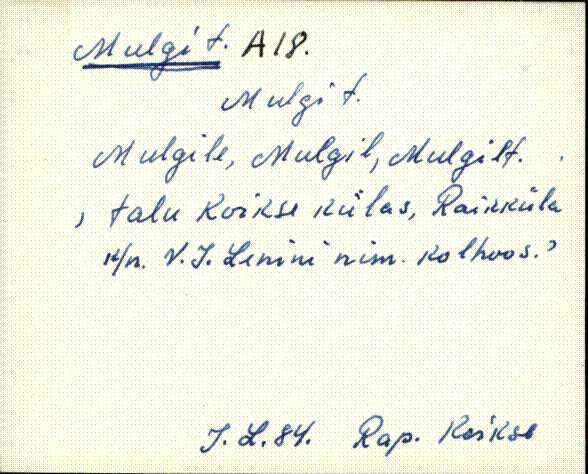 Mulgi t. A18.
Mulgi t.
Mulgile, Mulgil, Mulgilt.
, talu Koikse külas, Raikküla
k/n. V. I. Lenini nim. kolhoos.?
I. L. 84. Rap. Koikse